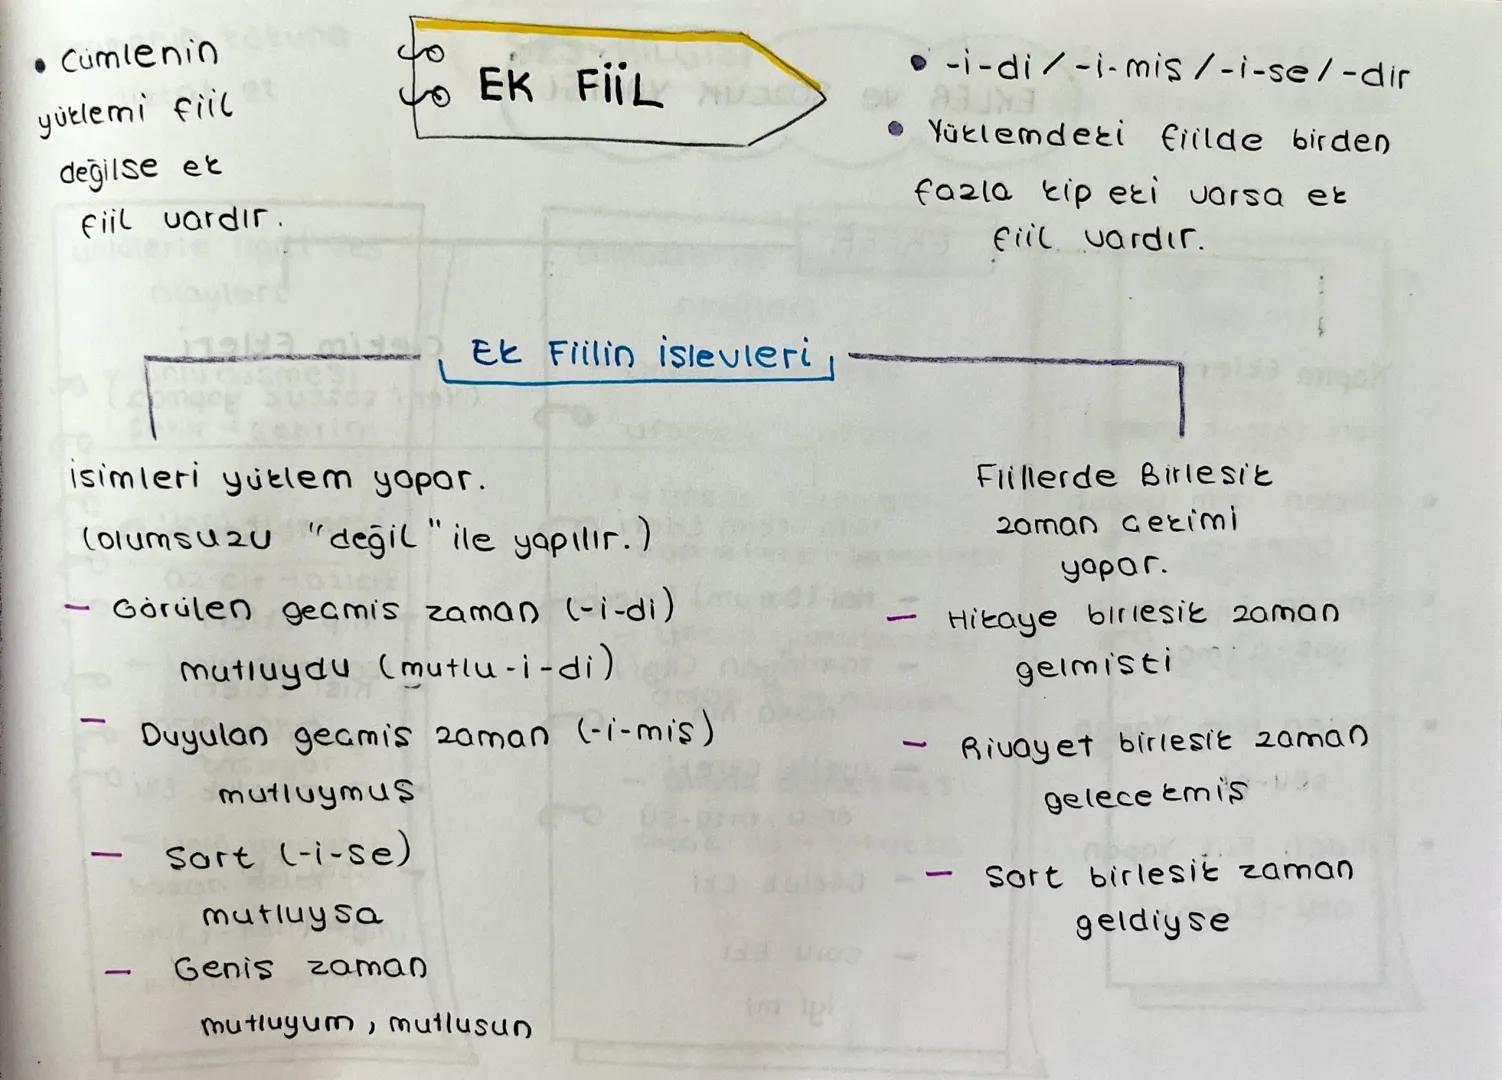 EK FİİL
• Cümlenin
yüklemi fiil
değilse ek
fiil vardır.
• -i-di / -i-mis / -i-se / -dir
• Yüklemdeki fiilde birden
fazla kip eki varsa ek
fiil vardır.
Ek Fiilin işlevleri
isimleri yüklem yapar.
(olumsuzu "değil" ile yapılır.)
- Görülen geçmiş zaman (-i-di)
mutluydu (mutlu-i-di)
- Duyulan geçmiş zaman (-i-miş)
mutluymuş
- Şart (-i-se)
mutluysa
- Geniş zaman
mutluyum, mutlusun
Fiillerde Birleşik
zaman çekimi
yapar.
- Hikaye birleşik zaman
gelmişti
- Rivayet birleşik zaman
gelecekmiş
- Şart birleşik zaman
geldiyse